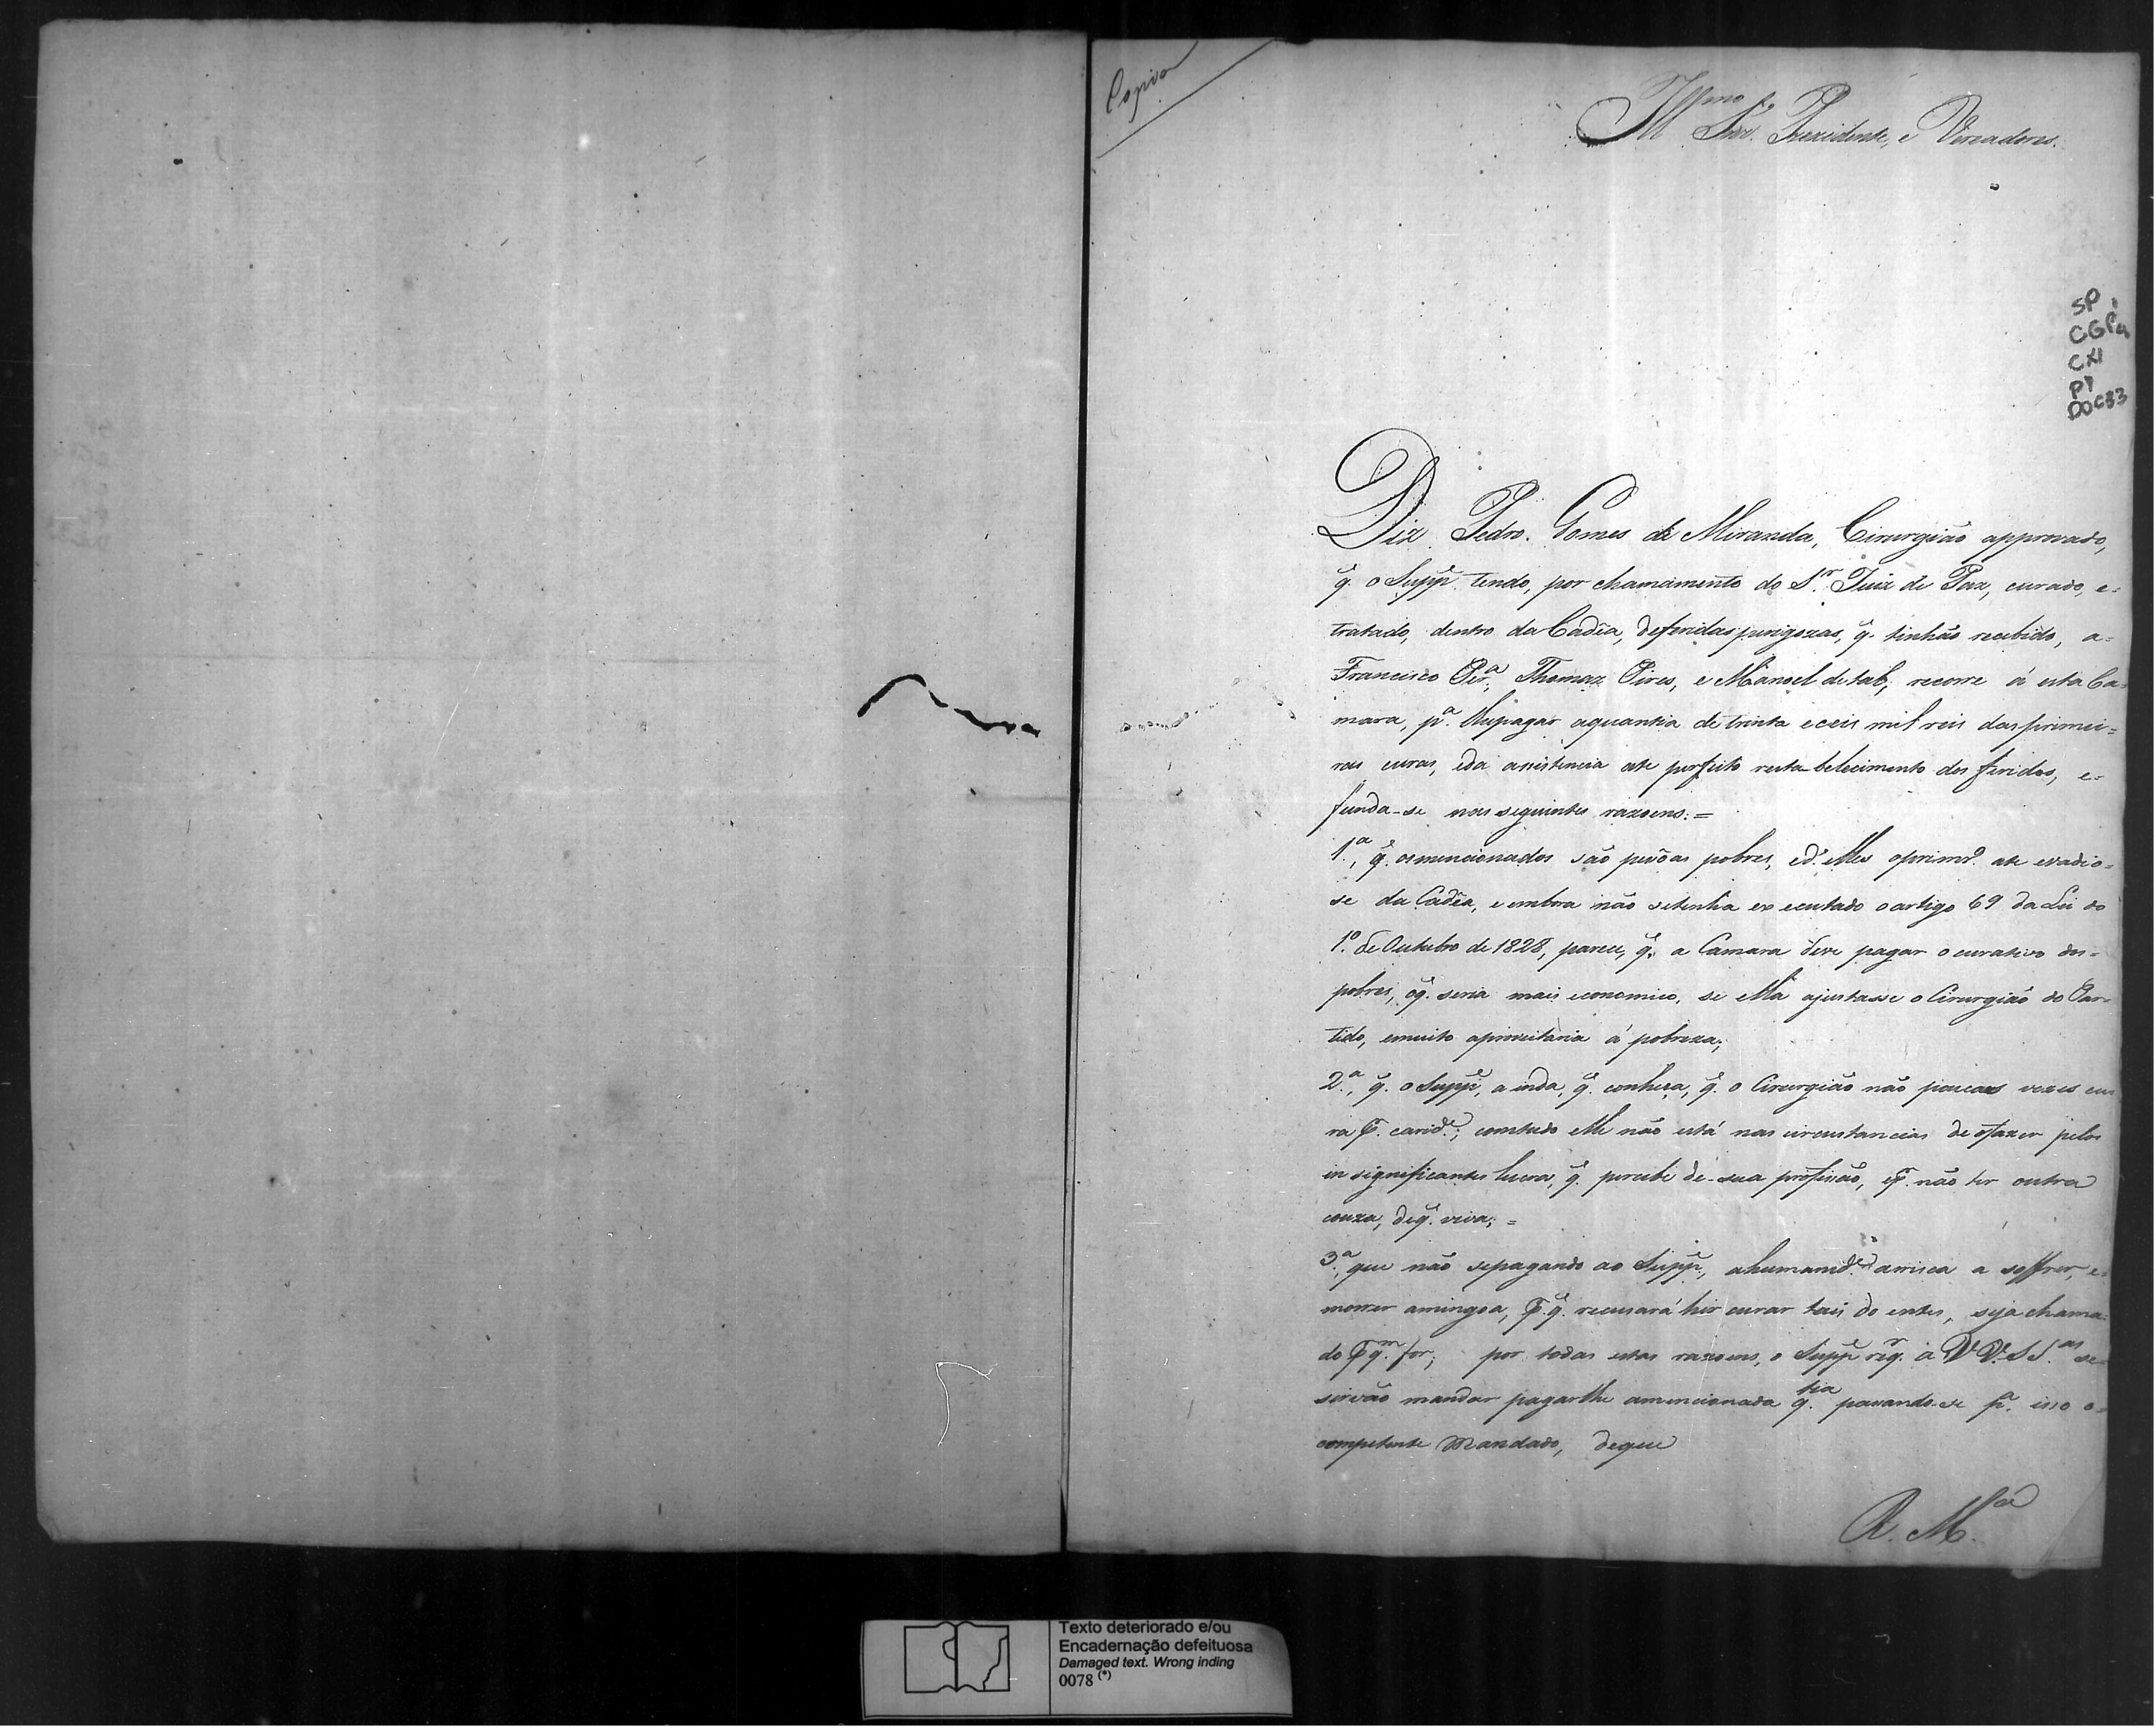 Copia
Ill.mo Snr. Prezidente, e Vereadores.
SP
CGP4
CX1
P1
DOC33
Diz Pedro Gomes de Miranda, Cirurgião approvado,
q.e o Supp.e tendo, por chamamento do S.r Juiz de Paz, curado, e=
tratado, dentro da Cadêa, deferidas perigozas, q.e tinhão recebido, a=
Francisco Per.a, Thomaz Pires, e Manoel de tal, recorre á esta Ca=
mara, p.a lhepagar aquantia de trinta eceis mil reis das primei=
ras curas, eda assistencia ate perfeito restabelecimento dos feridos, e=
funda-se nas seguintes razoens:=
1.a, q.e osmencionados são pessoas pobres, ed'elles oprimr.o ate evadio=
se da Cadêa, e embora não setenha executado oartigo 69 da Lei do
1.o de Outubro de 1828, parece, q.e a Camara deve pagar o curativo dos=
pobres, oq.e seria mais economico, se ella ajustasse o Cirurgião do Par=
tido, emuito aproveitaria á pobreza;
2.a, q.e o Supp.e, ainda, q.e conheça, q.e o Cirurgião não poucas vezes cu=
ra p.r carid.e; comtudo elle não está nas circustancias de ofazer pelos
insignificantes lucros, q.e percebe de sua profissão, ep.r não ter outra
couza, deq.e viva; =
3.a, que não sepagando ao Supp.e, ahumanid.e arrisca a soffrer, e=
morrer amingoa, p.r q.e recusará hir curar tais doentes, seja chama=
do p.r q.m for; por todas estas razoens, o Supp.e req.r a V V. S S.as se=
sirvão mandar pagarlhe amencionada q.tia passando-se p.a isso o=
competente Mandado, deque
R. M.ce
Texto deteriorado e/ou
Encadernação defeituosa
Damaged text. Wrong inding
0078 (*)